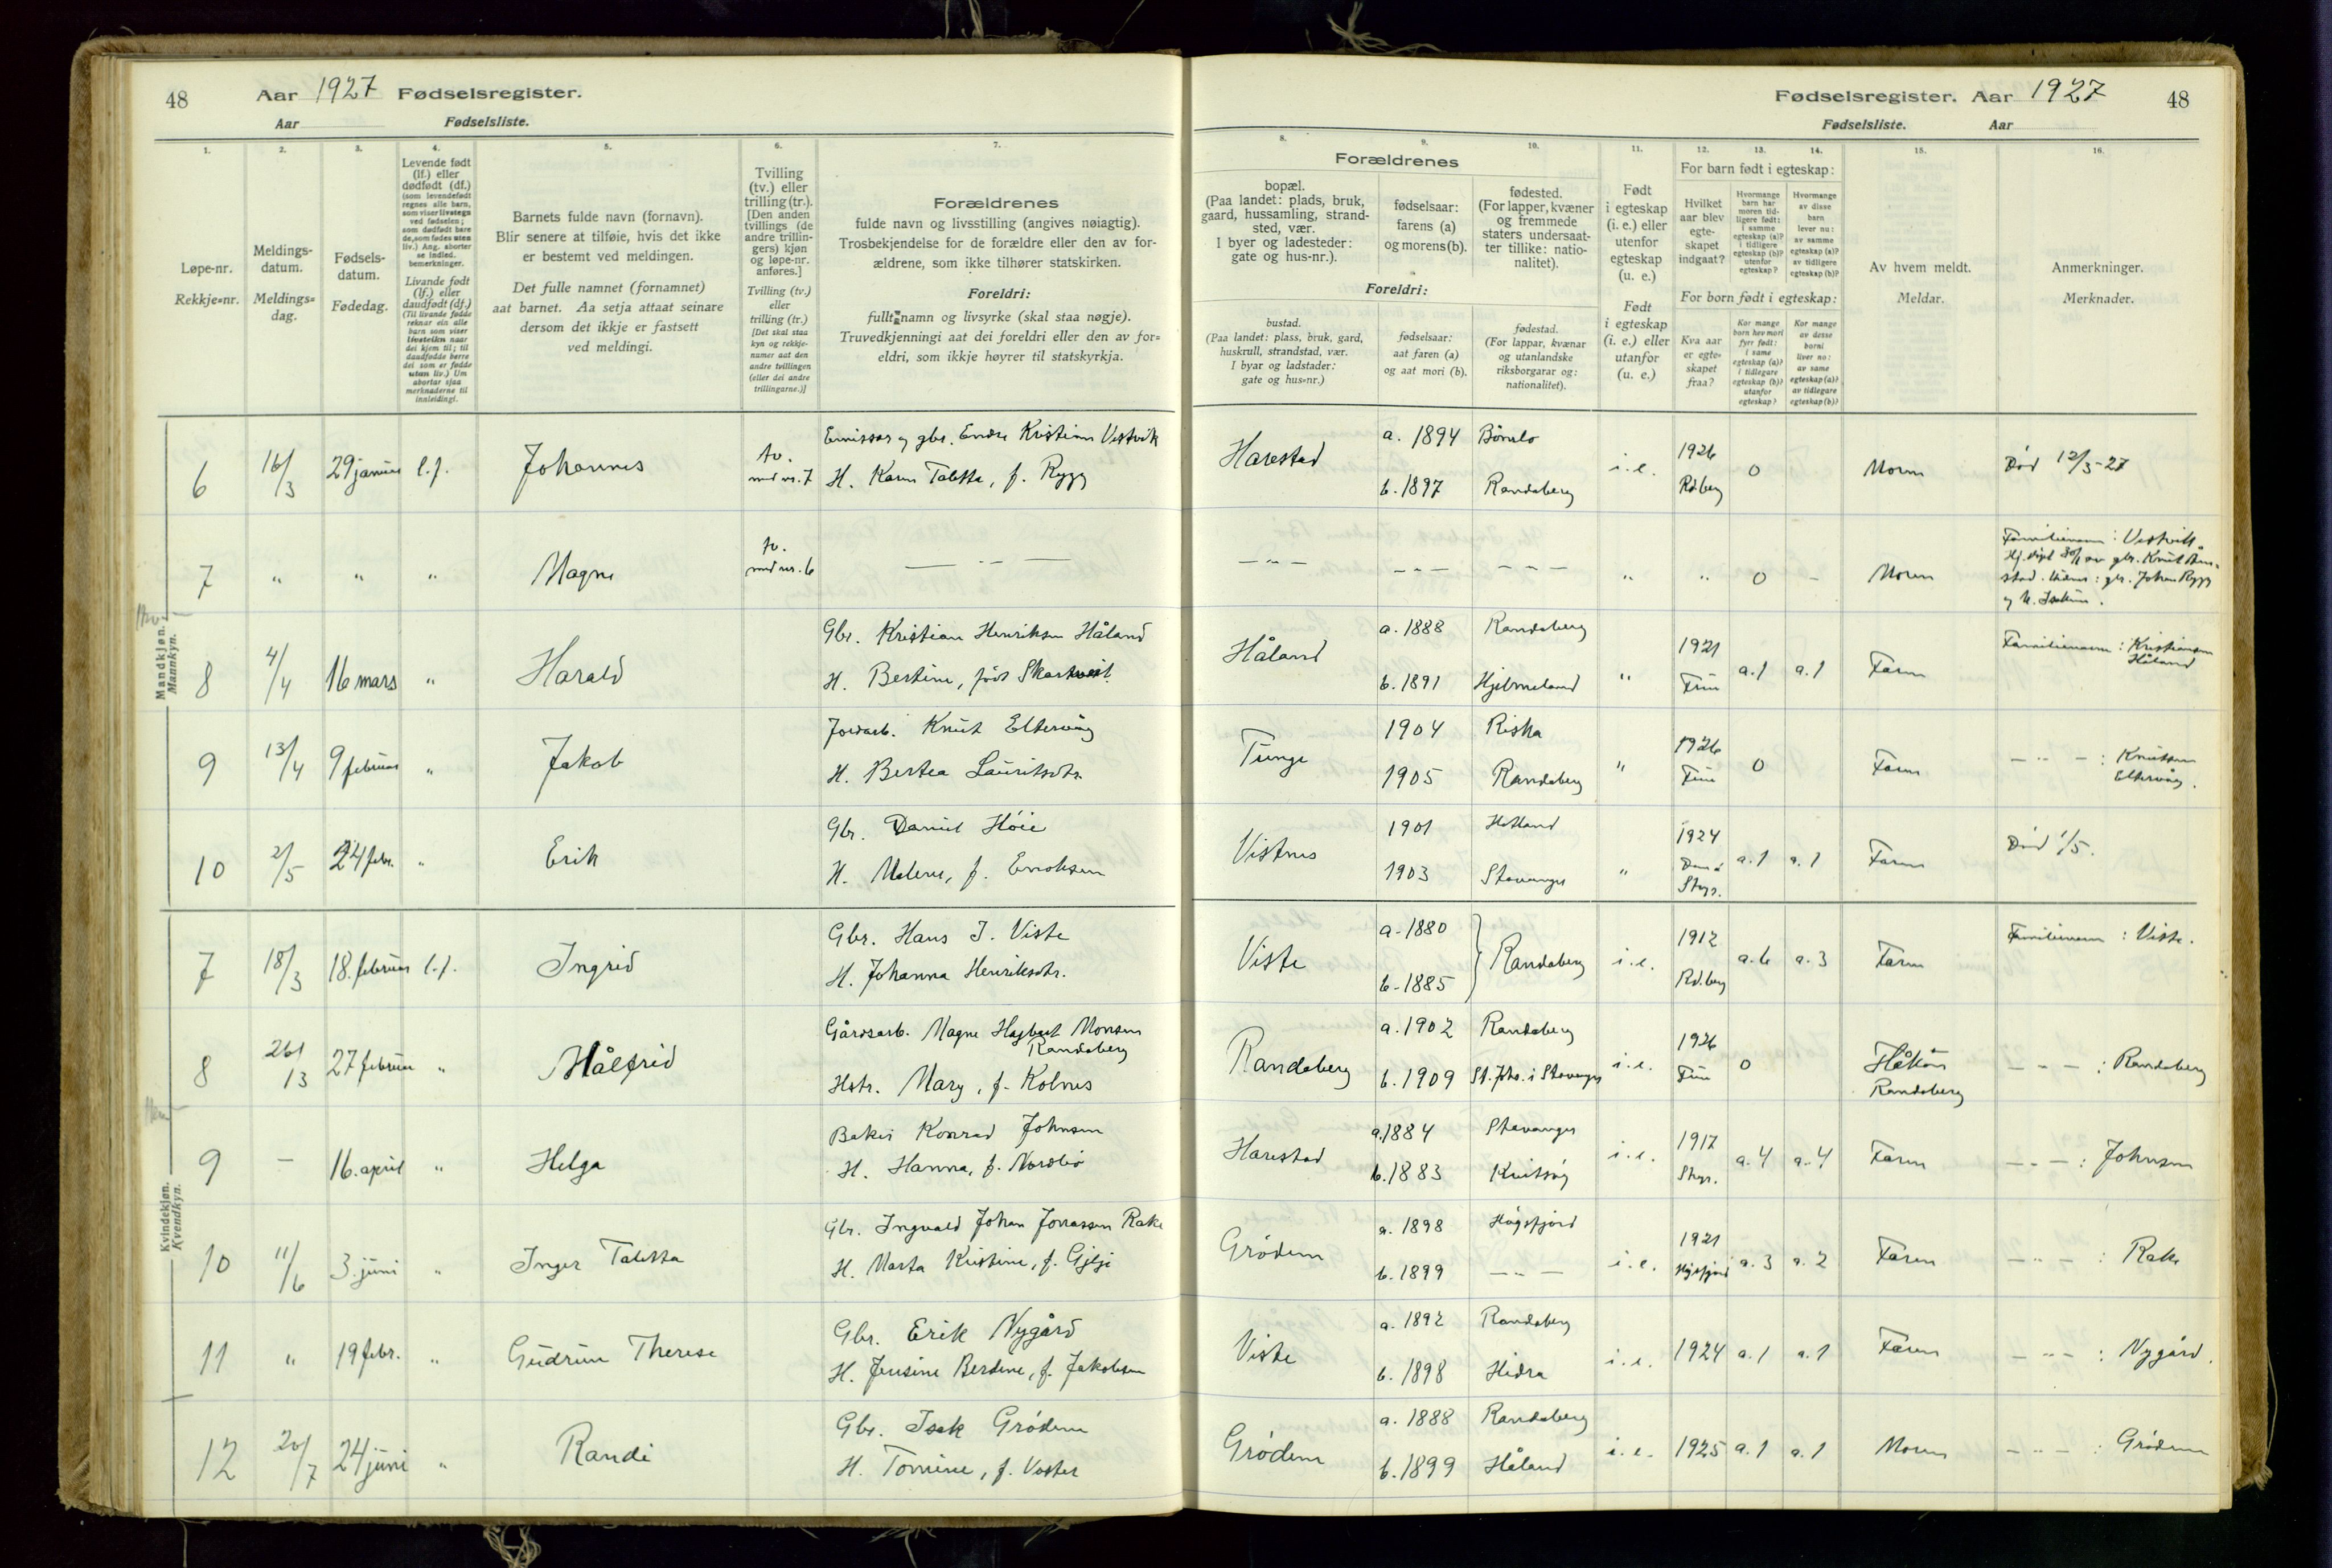 48
Aar 1927 Fødselsregister.
Aar Fødselsliste.
Fødselsregister. Aar 1927 48
Fødselsliste. Aar
1. 2. 3. 4. 5. 6. 7.
Løpe-nr.
Rekkje-nr.
Meldings-
datum.
Meldings-
dag.
Fødsels-
datum.
Fødedag.
Levende født
(lf.) eller
dødfødt (df.)
(som levendefødt
regnes alle barn,
som viser livstegn
ved fødselen;
som dødfødt bare
de, som fødes uten
liv.) Ang. aborter
se indled.
bemerkninger.
Livande født
(lf.) eller
daudfødt (df.)
(Til livande fødde
reknar ein alle
barn som viser
livsteikn naar
dei kjem til; til
daudfødde berre
dei som er fødde
utan liv.) Um
abortar sjaa
merknaderne til
innleidingi.
Barnets fulde navn (fornavn).
Blir senere at tilføie, hvis det ikke
er bestemt ved meldingen.
Det fulle namnet (fornamnet)
aat barnet. Aa setja attaat seinare
dersom det ikkje er fastsett
ved meldingi.
Tvilling
(tv.) eller
trilling (tr.).
[Den anden
tvillings (de
andre trillin-
gers) kjøn
og løpe-nr.
anføres.]
Tvilling (tv.)
eller
trilling (tr.)
[Det skal staa
kyn og rekkje-
numer aat den
andre tvillingen
(eller dei andre
trillingarne.)]
Forældrenes
fulde navn og livsstilling (angives nøiagtig).
Trosbekjendelse for de forældre eller den av for-
ældrene, som ikke tilhører statskirken.
Foreldri:
fullt namn og livsyrke (skal staa nøgje).
Truvedkjenningi aat dei foreldri eller den av for-
eldri, som ikkje høyrer til statskyrkja.
8. 9. 10. 11. 12. 13. 14. 15. 16.
Forældrenes
bopæl.
(Paa landet: plads, bruk,
gaard, hussamling, strand-
sted, vær.
I byer og ladesteder:
gate og hus-nr.).
fødselsaar:
farens (a)
og morens (b).
fødested.
(For lapper, kvæner
og fremmede
staters undersaat-
ter tillike: natio-
nalitet).
Foreldri:
bustad.
(Paa landet: plass, bruk, gard,
huskrull, strandstad, vær.
I byar og ladstader:
gate og hus-nr.)
fødselsaar:
aat faren (a)
og aat mori (b).
fødestad.
(For lappar, kvænar
og utanlandske
riksborgarar og:
nationalitet).
Født
i egteskap
(i. e.) eller
utenfor
egteskap
(u. e.)
Født
i egteskap
(i. e.) eller
utanfor
(u. e.)
For barn født i egteskap:
Hvilket
aar blev
egte-
skapet
indgaat?
Hvormange
barn har
moren tid-
ligere født:
i samme
egteskap (a)?
i tidligere
egteskap (b)?
utenfor
egteskap?
Hvormange
av disse
barn
lever nu:
av samme
egteskap (a)?
av tidligere
egteskap (b)?
For born født i egteskap:
Kva aar
er egte-
skapet
fraa?
Kor mange
born hev mori
fyrr født:
i same
egteskap (a)?
i tidlegare
egteskap (b)?
utanfor
egteskap?
Kor mange
av desse
borni
liver no:
av same
egteskap (a)?
av tidlegare
egteskap (b)?
Av hvem meldt.
Meldar.
Anmerkninger.
Merknader.
Mandkjøn.
Mannkyn.
6 16/3 29 januar l.f. Johannes tv. med nr. 7 Emissær og gbr. Endre Kristian Vestvik
H. Karen Taletta, f. Rygg
Harestad a. 1894 Bömlo
b. 1897 Randaberg i.e. 1926 Rd.berg 0 Moren Död 12/3-27
7 " " " Magne tv. med nr. 6 — " —
— " — — — — — — — " " 0 - Moren Familienavn: Vestvik
8 4/4 16 mars " Harald Gbr. Kristian Henriksen Håland
H. Bertine, född Skartveit
Håland a. 1888 Randaberg
b. 1891 Hjelmeland " 1921 a. 1 a. 1 Faren Familienavn: Kristiansen
Håland
9 13/4 9 februar " Jakob Jordarb. Knut Eltervåg
H. Bertea Lauritsdtr.
Tunge 1904 Riska
1905 Randaberg " 1926 0 Faren — " — : Knutsen
Eltervåg.
10 2/5 24 febr. " Erik Gbr. Daniel Höie
H. Malene, f. Enoksen
Vistnes 1901 Hetland
1903 Stavanger " 1924 a. 1 a. 1 Faren Död 1/5.
Kvindekjøn.
Kvendkyn.
7 18/3 18. februar l.f. Ingrid Gbr. Hans J. Viste
H. Johanna Henriksdtr.
Viste a. 1880
b. 1885 Randaberg i.e. 1912 Rd.berg a. 6 a. 3 Faren Familienavn: Viste.
8 26/3 27 februar " Målfrid Gårdsarb. Magne Hagbart Monsen
Randaberg
Hstr. Mary, f. Kolnes
Randaberg a. 1902 Randaberg
b. 1909 St. Ptr. i Stavanger i.e. 1926 0 Håkon
Randaberg — " — : Randaberg
9 - 16. april " Helga Baker Konrad Johnsen
H. Hanna, f. Nordbö
Harestad a. 1884 Stavanger
b. 1883 Kvitsöy i.e. 1917 Stgr. a. 4 a. 4 Faren — " — : Johnsen
10 11/6 3. juni " Inger Taletta Gbr. Ingvald Johan Jonassen Rake
H. Marta Kristine, f. Gjilje
Grödem a. 1898 Högsfjord
b. 1899 — " — i.e. 1921 Högsfjord a. 3 a. 2 Faren — " — : Rake
11 " 19 febr. " Gudrun Therese Gbr. Erik Nygård
H. Jensine Berdine, f. Jakobsen
Viste a. 1892 Randaberg
b. 1898 Hidra i.e. 1924 a. 1 a. 1 Faren — " — : Nygård.
12 20/7 24 juni " Randi Gbr. Isak Grödem
H. Tomine, f. Vaster
Grödem a. 1888 Randaberg
b. 1899 Håland i.e. 1925 a. 1 a. 1 Moren — " — : Grödem